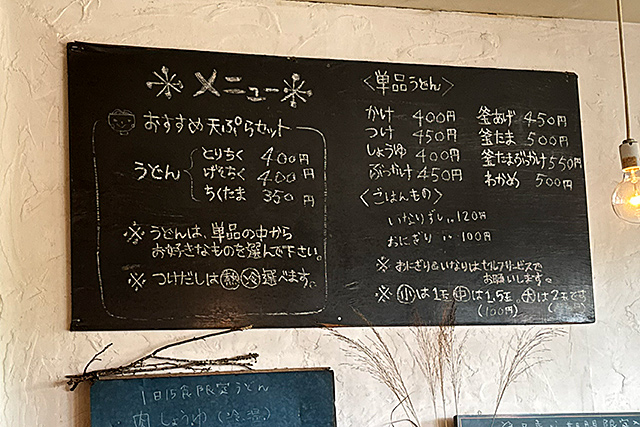 メニュー
おすすめ天ぷらセット
うどん
とりちく 400円
げそちく 400円
ちくたま 350円
※うどんは、単品の中から
お好きなものを選んで下さい。
※つけだしは熱冷選べます。
〈単品うどん〉
かけ 400円
つけ 450円
しょうゆ 400円
ぶっかけ 450円
釜あげ 450円
釜たま 500円
釜たまぶっかけ 550円
わかめ 500円
〈ごはんもの〉
いなりずし‥120円
おにぎり‥100円
※おにぎり&いなりはセルフサービスで
お願いします。
※小は1玉中は1.5玉、大は2玉です
(100円)
1日15食限定うどん
肉しょうゆ(冷温)